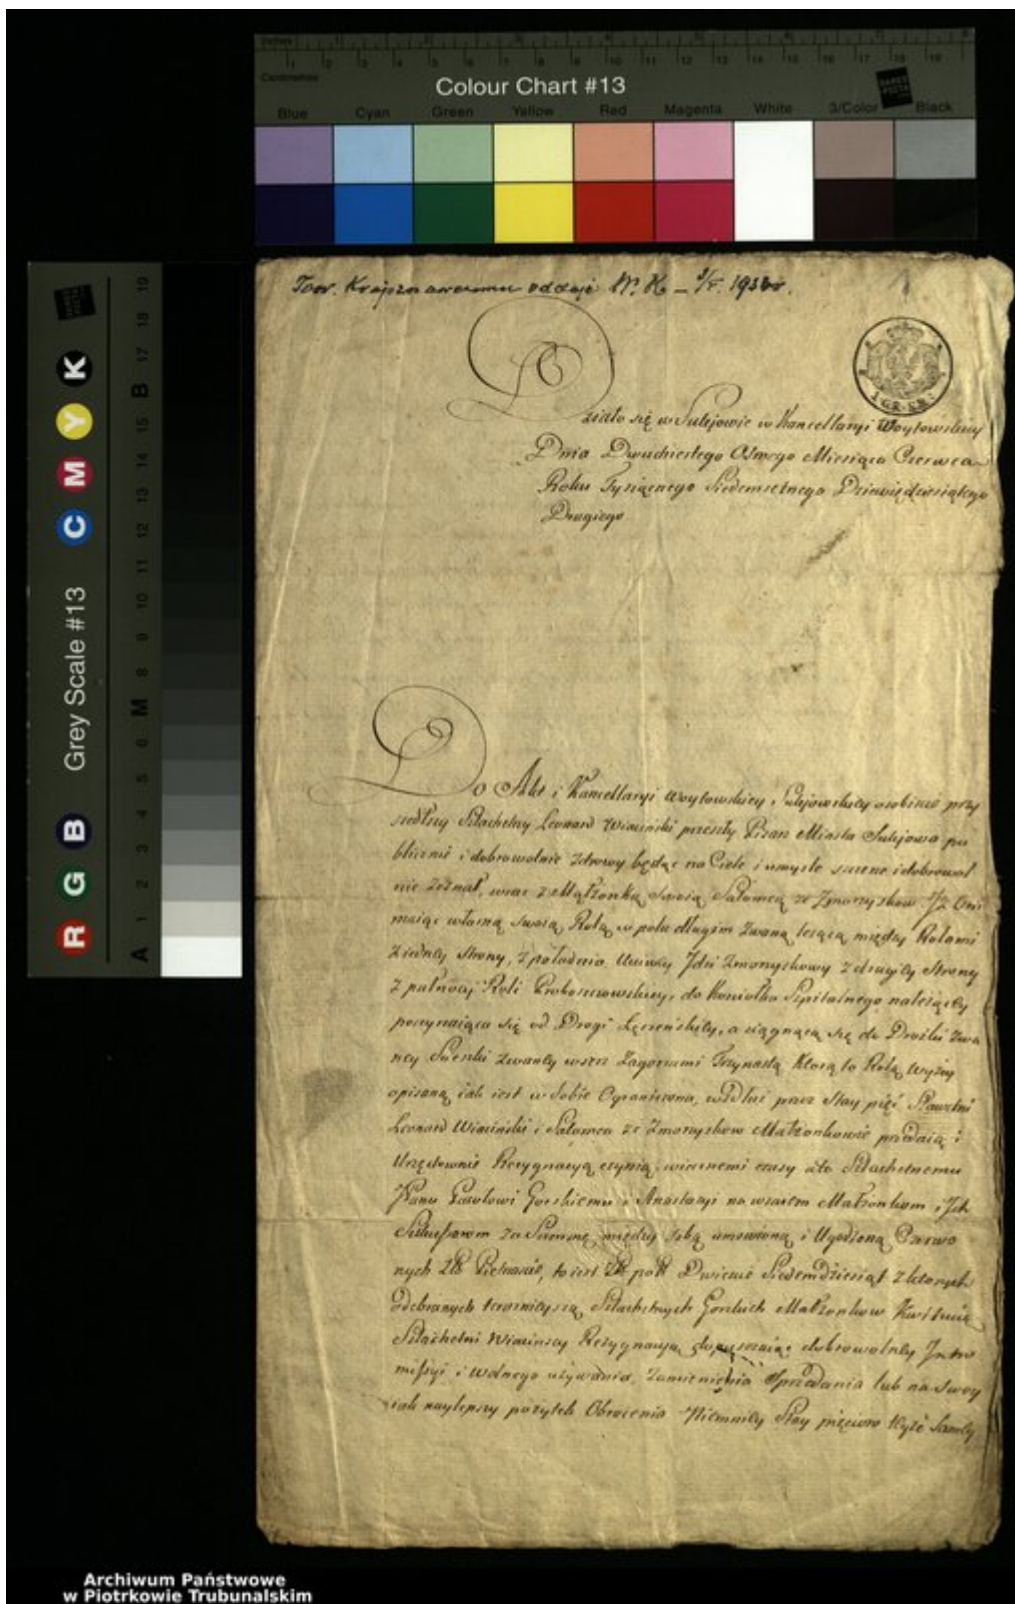 Colour Chart #13
Blue Cyan Green Yellow Red Magenta White 3/Color Black
Grey Scale #13
R G B C M Y K
A 1 2 3 4 5 6 M 8 9 10 11 12 13 14 15 B 17 18 19
Tow. Krajoznawczemu oddaje W. K. 1938 r.
Działo się w Sulejowie w Kancellaryi Woytowskiey
Dnia Dwudziestego Osmego Miesiąca Czerwca
Roku Tysiącnego Siedemsetnego Dziewiędziesiątego
Drugiego
Do Akt i Kancellaryi Woytowskiey Sulejowskiey osobiscie przy
szedłszy Szlachetny Leonard Wiaciński przeszły Pisarz Miasta Sulejowa pu
blicznie i dobrowolnie zdrowy będąc na Ciele i umysle szczerze i dobrowol
nie zeznał, wraz z Małżonką swoią Salomeą ze Zmorzyskow Jż Oni
maiąc własną swoią Rolą w polu długim zwaną leżącą między Rolami
z iedney strony, z południa Jdzi Zmorzyskowy z drugiey strony
z pułnocy Roli Proboszczowskiey, do Kosciołka Szpitalnego należącey
poczynaiąca się od Drogi Łęczeńskiey, a ciągnącą się do Drożki zwa
ney zwaney wszerz Zagonami Trzynastą ktorą to Rolą wyżey
opisaną iak iest w sobie Ograniczona, wzdłuż przez Stay pięć Sławetni
Leonard Wiaciński i Salomea ze Zmorzyskow Małżonkowie przedaią i
Urzędownie Rezygnacyą czynią, wiecznemi czasy a to Szlachetnemu
Panu Pawłowi Gorskiemu i Anastazyi na wzaiem Małżonkom i Jch
Sukcessorom za Summę między sobą umowioną i Ugodzoną Czerwo
nych Zł Pietnascie, to iest Zł pol Dwiescie Siedemdziesiąt z ktorych
odebranych teraznieyszą Szlachetnych Gorskich Małżonkow Kwituią
Szlachetni Wiacińscy Rezygnacyą, dopuszczaiąc dobrowolney Jntro
missyi i wolnego używania, Zamienienia Sprzedania lub na swoy
iak naylepszy pożytek Obrocenia Niemniey Stay pięcioro teyże Samey
Archiwum Państwowe
w Piotrkowie Trubunalskim